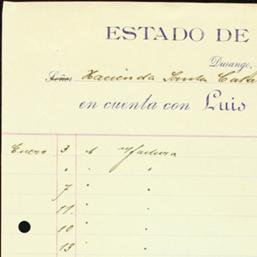 ESTADO DE
Durango,
Señor Hacienda Santa Cata
en cuenta con Luis
Enero 3 A factura
" " "
7 " "
11 " "
10 " "
13 " "